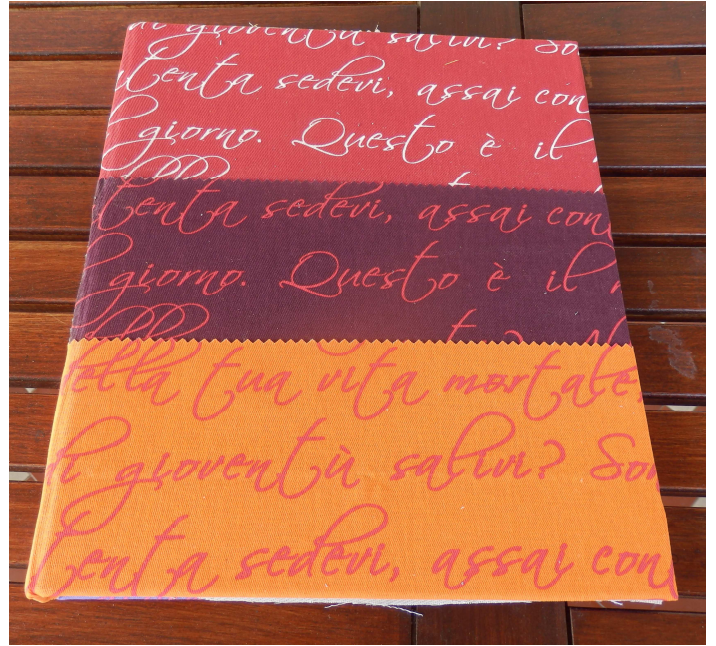 di gioventù salivi? So
tenta sedevi, assai con
giorno. Questo è il
tenta sedevi, assai con
giorno. Questo è il
della tua vita mortale,
di gioventù salivi? Son
tenta sedevi, assai con